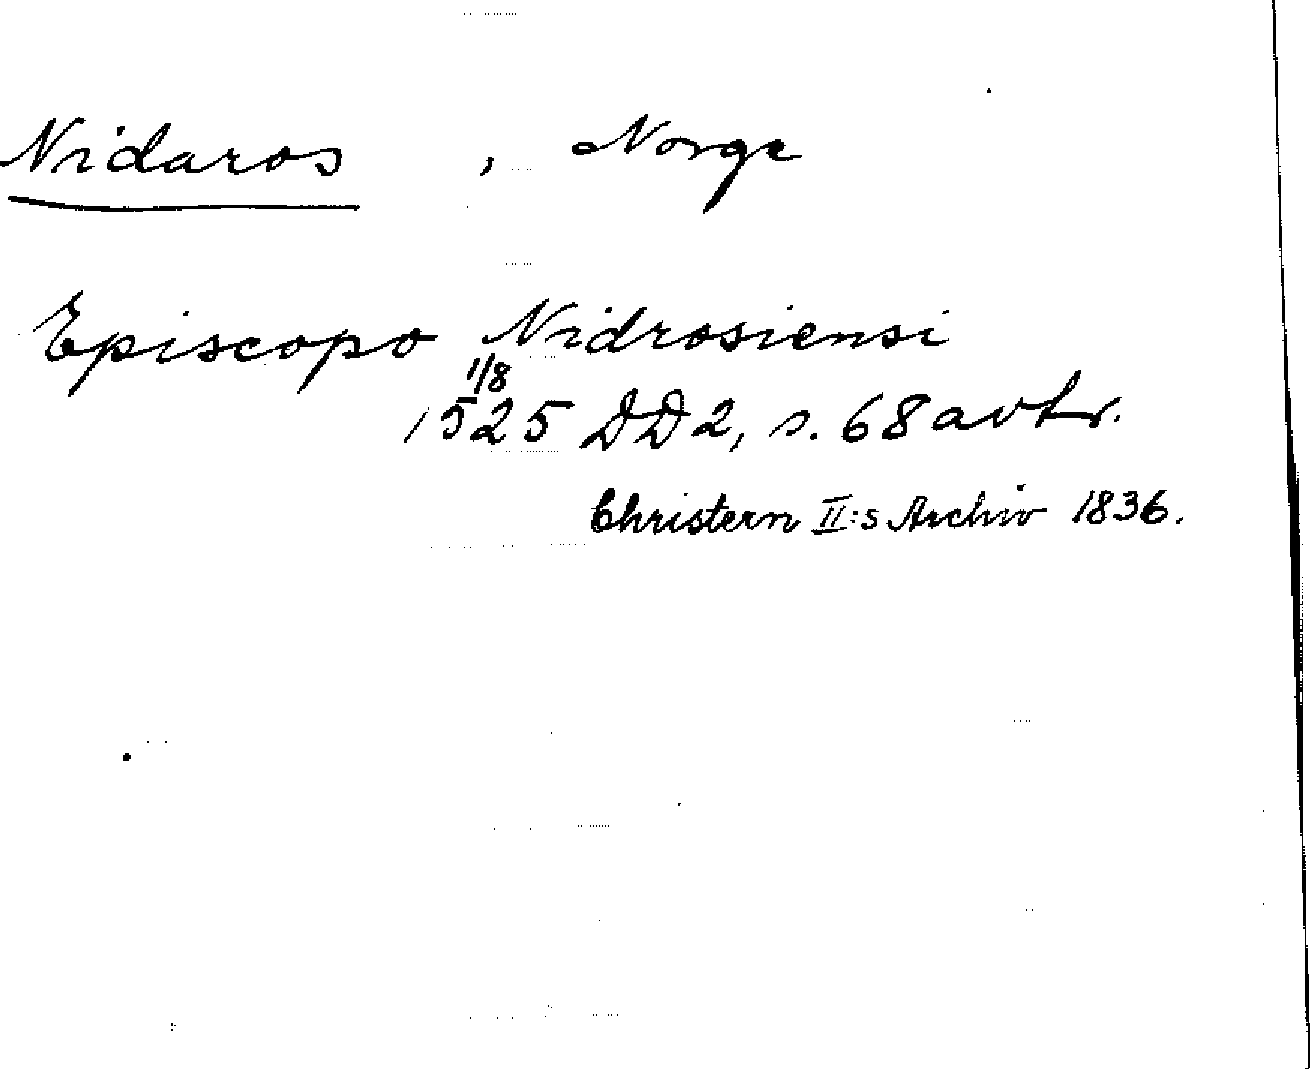 Nidaros , Norge
Episcopo Nidrosiensi
1/8
1525 DD2, s. 68 avtr.
Christern II:s Archiv 1836.